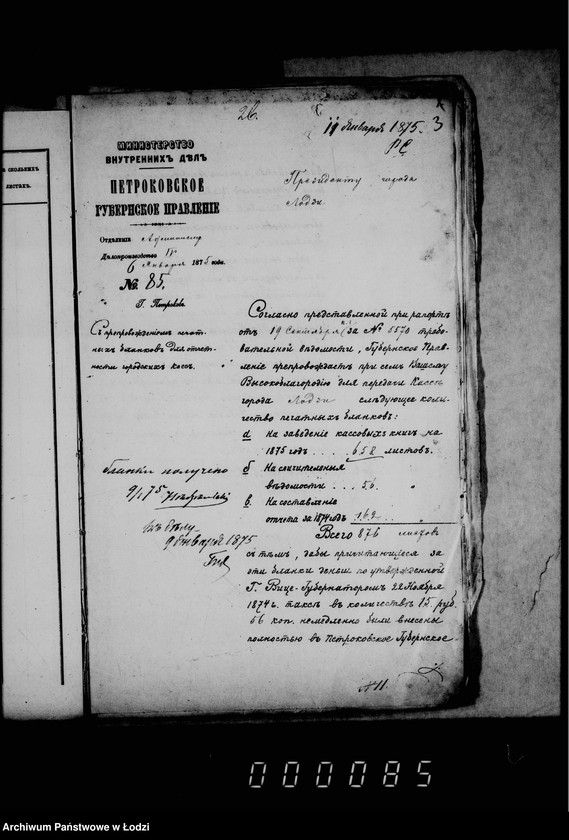 26.
11 Января 1875.
3
а сколькихъ
листахъ.
МИНИСТЕРСТВО
ВНУТРЕННИХЪ ДѢЛЪ
ПЕТРОКОВСКОЕ
ГУБЕРНСКОЕ ПРАВЛЕНІЕ
Отдѣленіе
Дѣлопроизводство IV
6 Января 1875 года.
№ 85.
Г. Петроковъ
Президенту города
Лодзи
Съ препровожденіемъ печат-
ныхъ бланковъ для отчет-
ности городскихъ кассъ.
Согласно представленной при рапортѣ
отъ 19 Сентября за № 5570 требо-
вательной вѣдомости, Губернское Прав-
леніе препровождаетъ при семъ Вашему
Высокоблагородію для передачи Кассѣ
города Лодзи слѣдующее коли-
чество печатныхъ бланковъ:
а На заведеніе кассовыхъ книгъ на
1875 годъ . . . . 652 листовъ.
б На
вѣдомости . . . 56 "
в. На составленіе
отчета за 1874 годъ 162 "
Всего 876 листовъ
съ тѣмъ, дабы причитающіеся за
эти бланки деньги по утвержденной
Г. Вице-Губернаторомъ 22 Ноября
1874 г. таксѣ въ количествѣ 15 руб.
56 коп. немедленно были внесены
полностью въ Петроковское Губернское
бланки получено
9/I 75
Къ дѣлу
9 января 1875
№ 11.
000085
Archiwum Państwowe w Łodzi